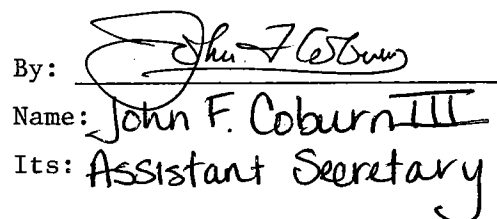 By: John F Coburn
Name: John F. Coburn III
Its: Assistant Secretary